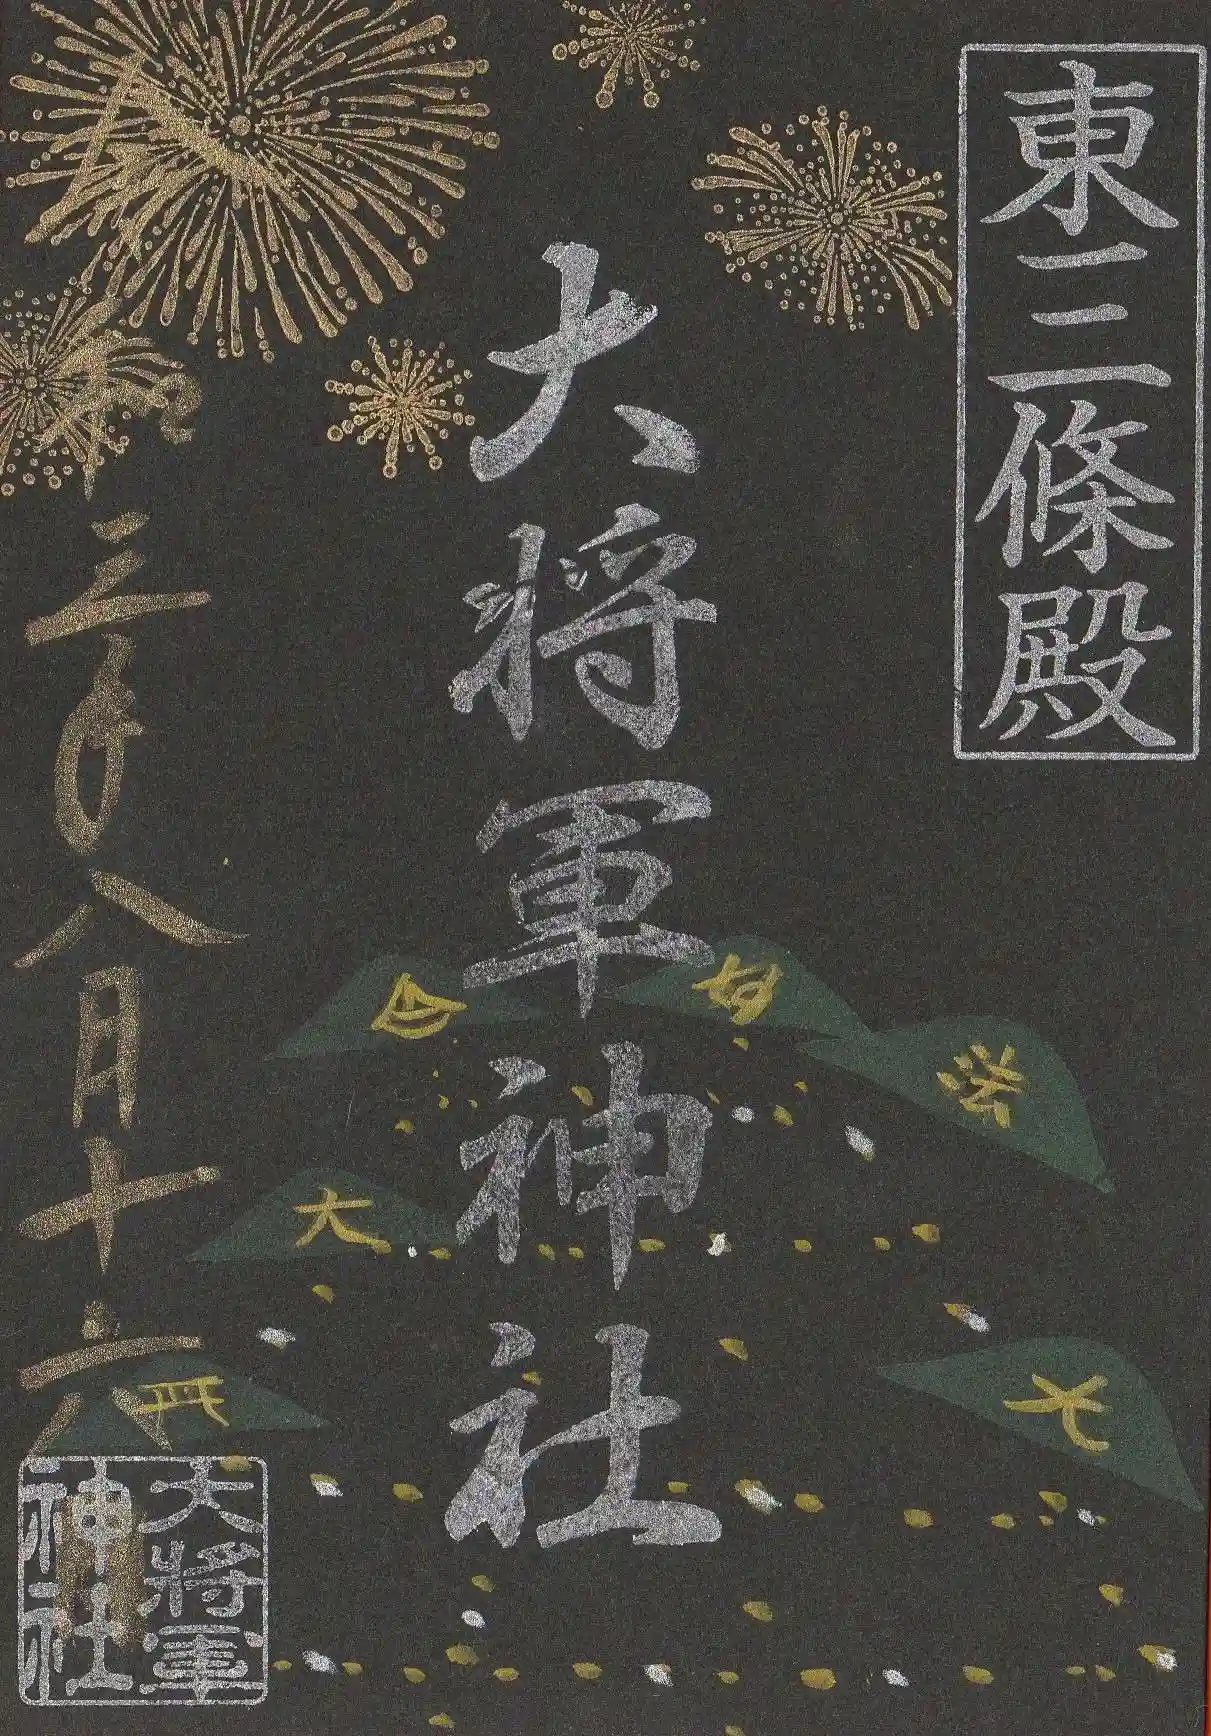 東三條殿
大将軍神社
令和三年八月十六日
妙
法
大
大
大將軍
神社